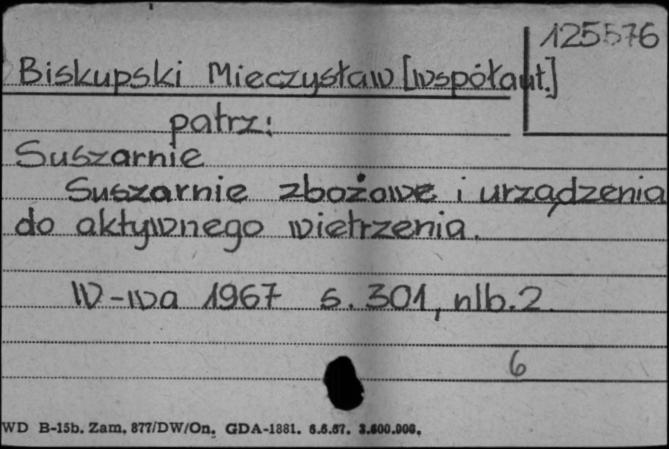 125576
Biskupski Mieczysław [współaut.]
patrz:
Suszarnie
Suszarnie zbożowe i urządzenia
do aktywnego wietrzenia.
W-wa 1967 s. 301, nlb. 2
6
WD B-15b. Zam. 877/DW/On. GDA-1881. 6.6.67. 3.600.000.